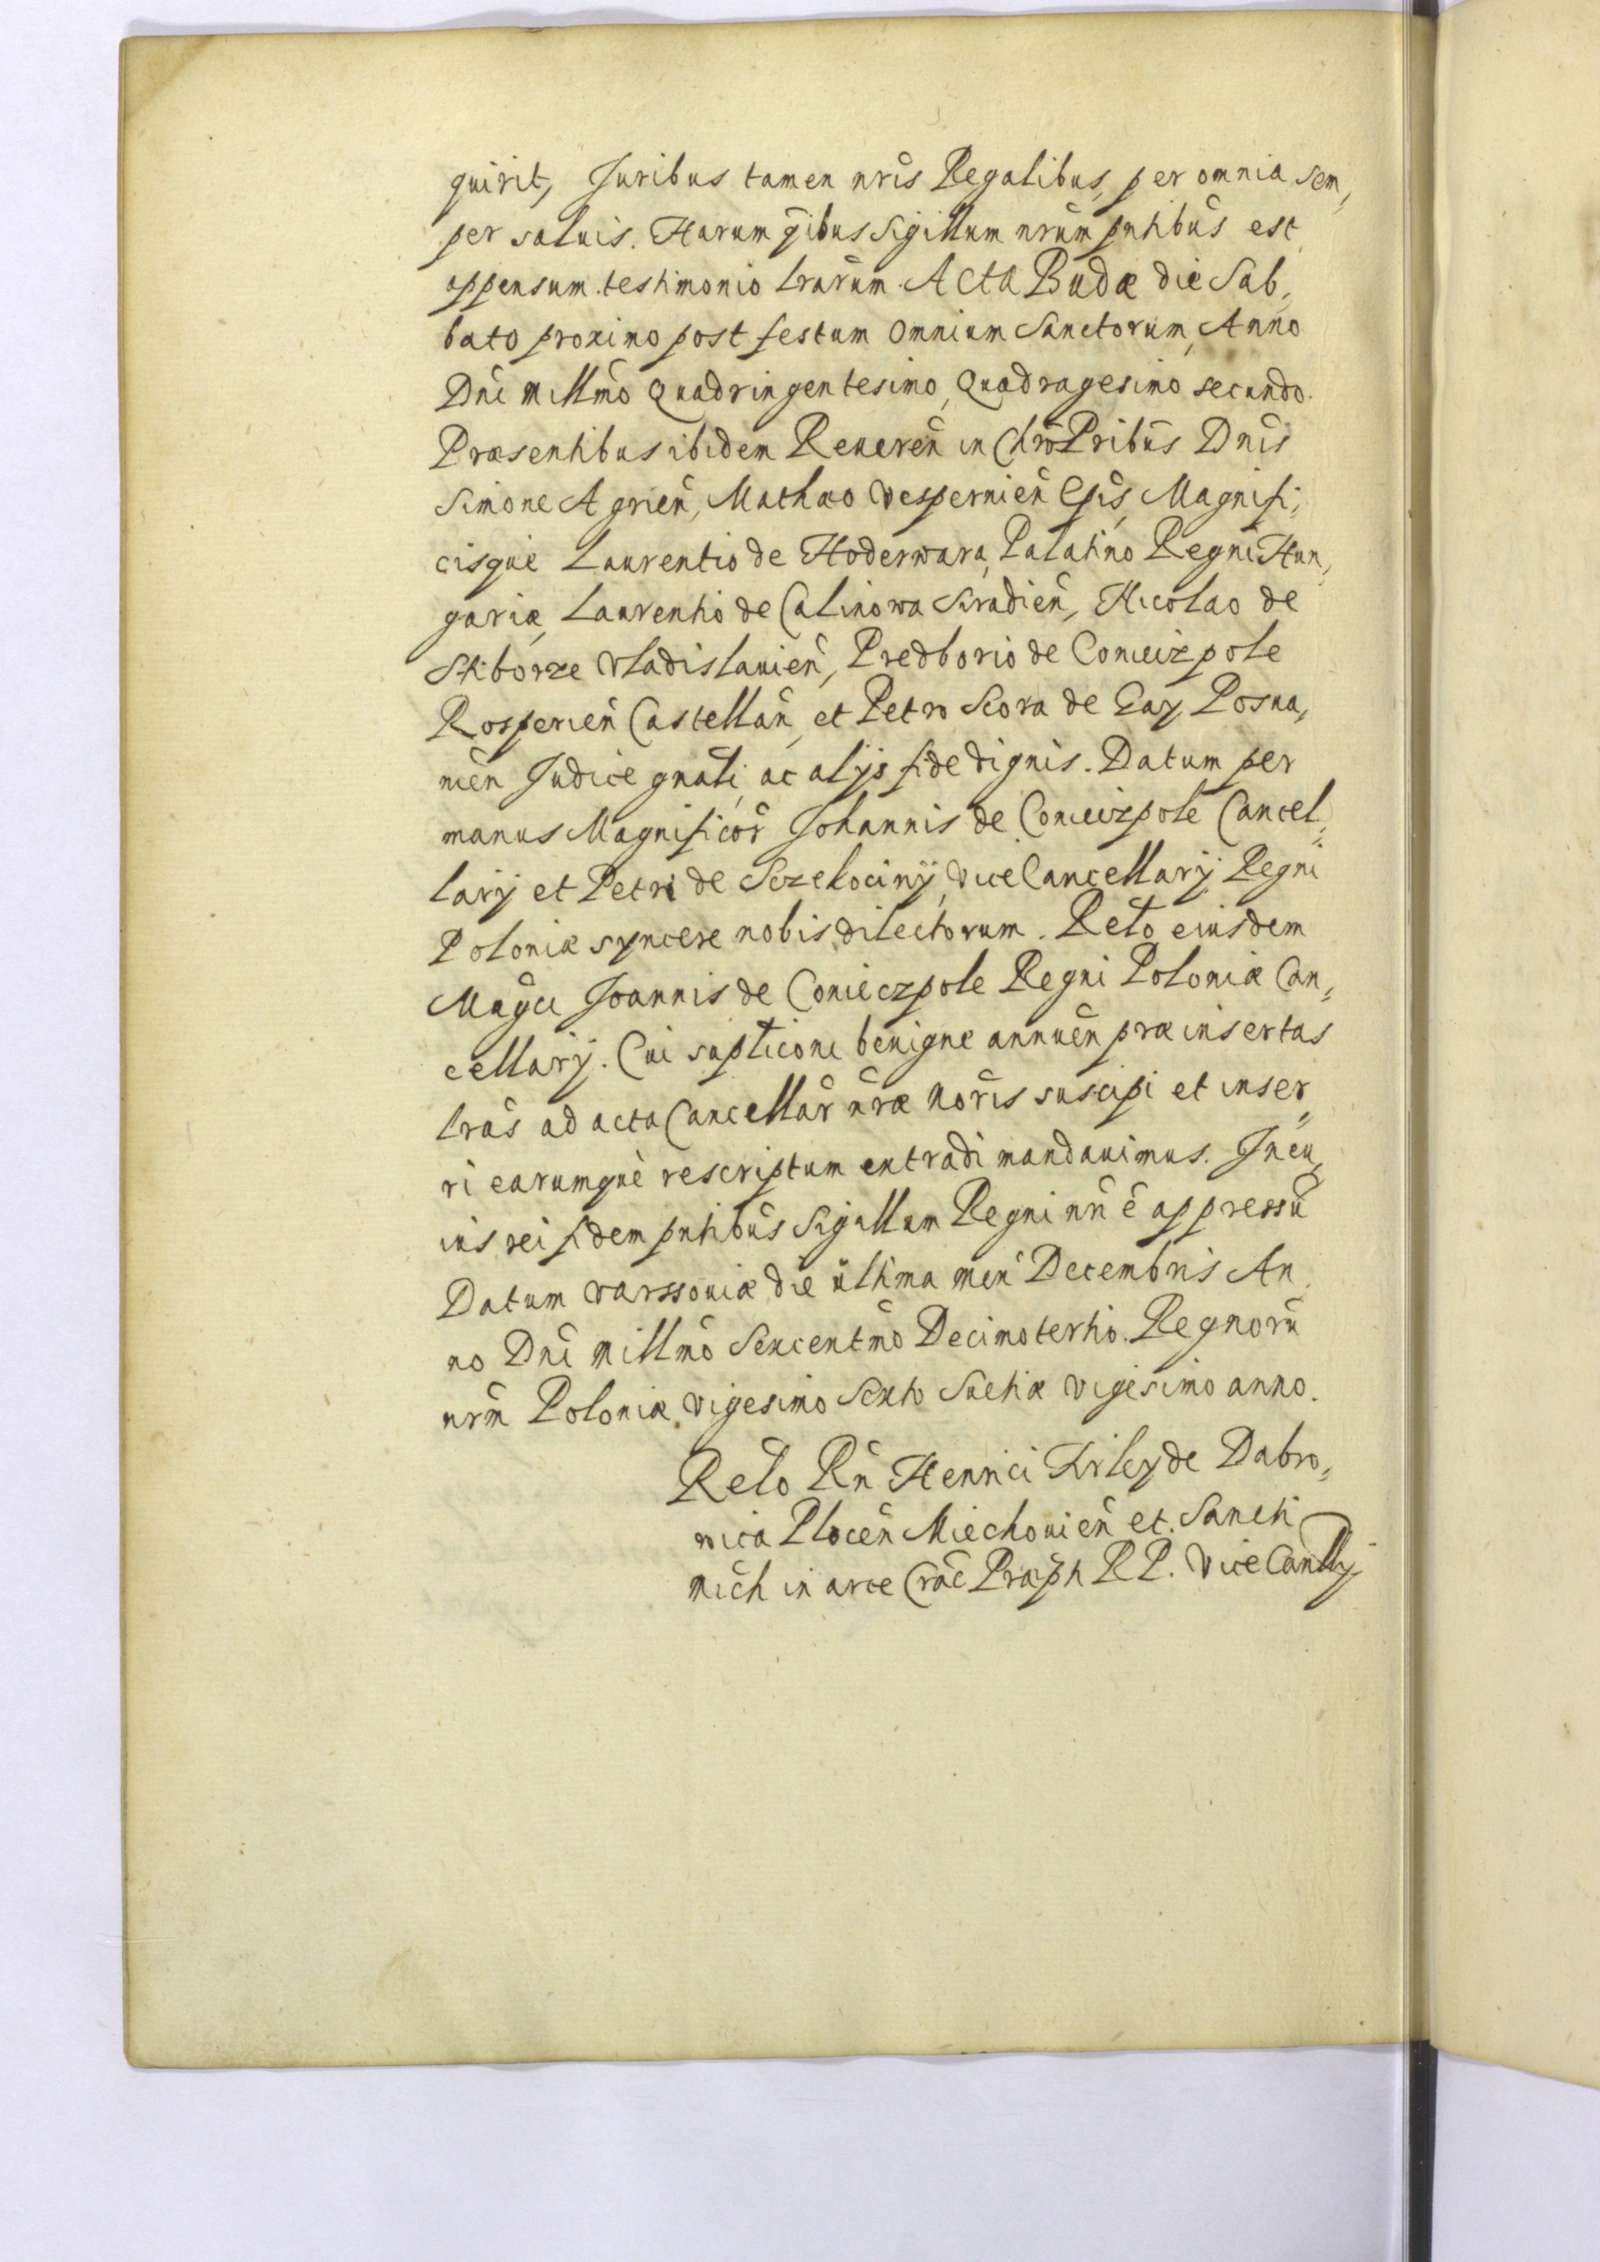 quirit, Juribus tamen nris Regalibus, per omnia sem,
per saluis. Harum qibus Sigillum nrum pntibus est
appensum testimonio lrarum. Acta Budæ die Sab,
bato proximo post festum Omnium Sanctorum, Anno
Dni Millmo Quadringentesimo, Quadragesimo secundo.
Præsentibus ibidem Reueren in Chro Pribus Dnis
Simone Agrien, Mathæo Vesperniен Epis, Magnifi,
cisque Laurentio de Hoderwara, Palatino Regni Hun,
gariæ, Laurentio de Calinowa Siradien, Nicolao de
Stiborze Vladislauien, Predborio deConieczpole
Rosperien Castellan, et Petro Scora de Gay Posna,
nien Judice gnali, ac alijs fide dignis. Datum per
manus Magnificor Johannis de Conieczpole Cancel,
larij et Petri de Sczekociny, ViceCancellarij Regni
Poloniæ syncere nobis dilectorum. Relo eiusdem
Magci Joannis de Conieczpole Regni Poloniæ Can,
cellarij. Cui supliconi benigne annuen præinsertas
lras ad acta Cancellar nræ noris suscipi et inser,
ri earumque rescriptum extradi mandauimus. In cu,
ius rei fidem pntibus Sigillum Regni nri e appressu
Datum Varssouiæ die ultima men Decembris An,
no Dni Millmo Sexcentmo Decimotertio. Regnoru
nrm Poloniæ Vigesimo Sexto Suetiæ Vigesimo anno.
Relo Rn Henrici Firley de Dabro,
wica Plocen Miechouien et Sancti
Mich in arce Crac Præp R P. ViceCancllrj